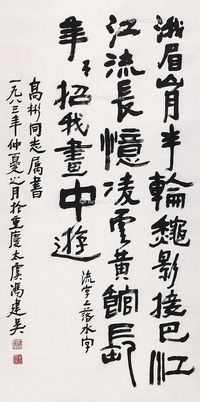 涐眉山月半輪龝影接巴江
江流長憶凌雲黃館長
年〻招我畫中遊
流字上落水字
高彬同志属書
一九八三年仲夏之月於重慶太虞馮建吴